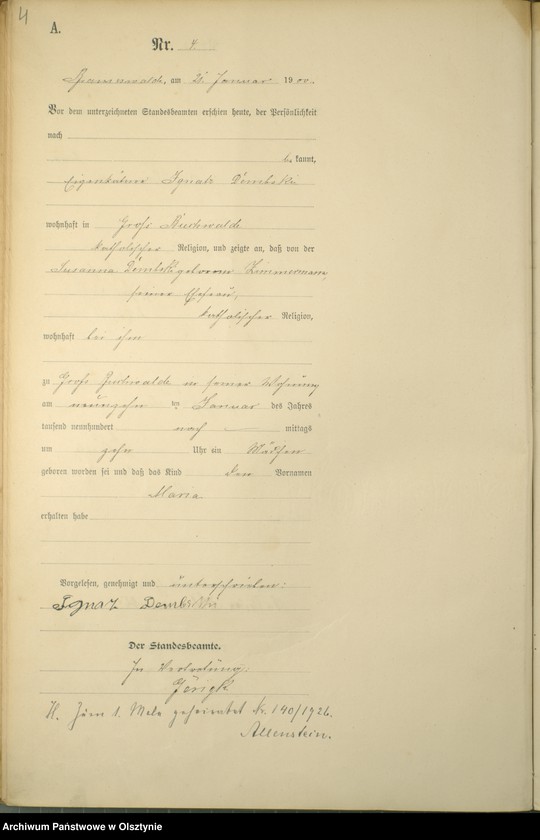 4
A.
Nr. 8
am 21. Januar 1900.
Vor dem unterzeichneten Standesbeamten erschien heute, der Persönlichkeit
nach
bekannt,
Eigenkätner Ignatz Dembski
wohnhaft in Groß Buchwalde
katholischer Religion, und zeigte an, daß von der
Susanna Dembski geborenen Zimmermann,
seiner Ehefrau,
katholischer Religion,
wohnhaft bei ihm
zu Groß Buchwalde in seiner Wohnung
am neunzehnten Januar des Jahres
tausend neunhundert nach mittags
um zehn Uhr ein Mädchen
geboren worden sei und daß das Kind den Vornamen
Maria
erhalten habe
Vorgelesen, genehmigt und unterschrieben:
Ignaz Dembski
Der Standesbeamte.
In Vertretung:
H. Zum 1. Male geheiratet Nr. 140/1926.
Allenstein.
Archiwum Państwowe w Olsztynie